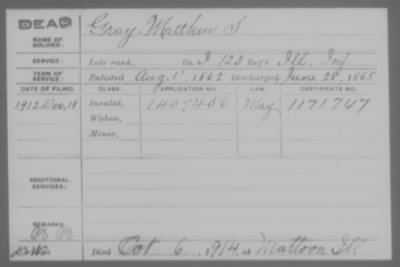 DEAD
NAME OF SOLDIER: Gray, Matthew S
SERVICE: Late rank, Co. I 123 Reg't Ill. Inf
TERM OF SERVICE: Enlisted Aug. 1, 1862 Discharged June 28, 1865
DATE OF FILING. CLASS. APPLICATION NO. LAW. CERTIFICATE NO.
1912 18 Invalid, 1407456 May 1171747
Widow,
Minor,
ADDITIONAL SERVICES:
REMARKS:
Died Oct 6, 1914, at Mattoon Ill